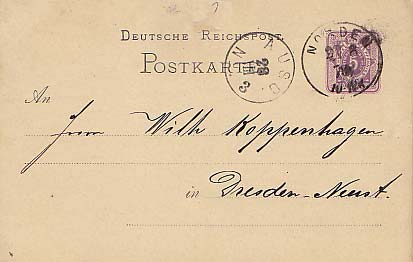 DEUTSCHE REICHSPOST
POSTKARTE
NORDEN
AUSG.
23
III
3
N
An
Herrn Wilh Koppenhagen
in Dresden-Neust.